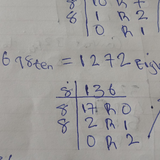 8 10 R 7
8 1 R 2
0 R 1
698ten = 1272Eigh
8 136
8 17 R 0
8 2 R 1
0 R 2